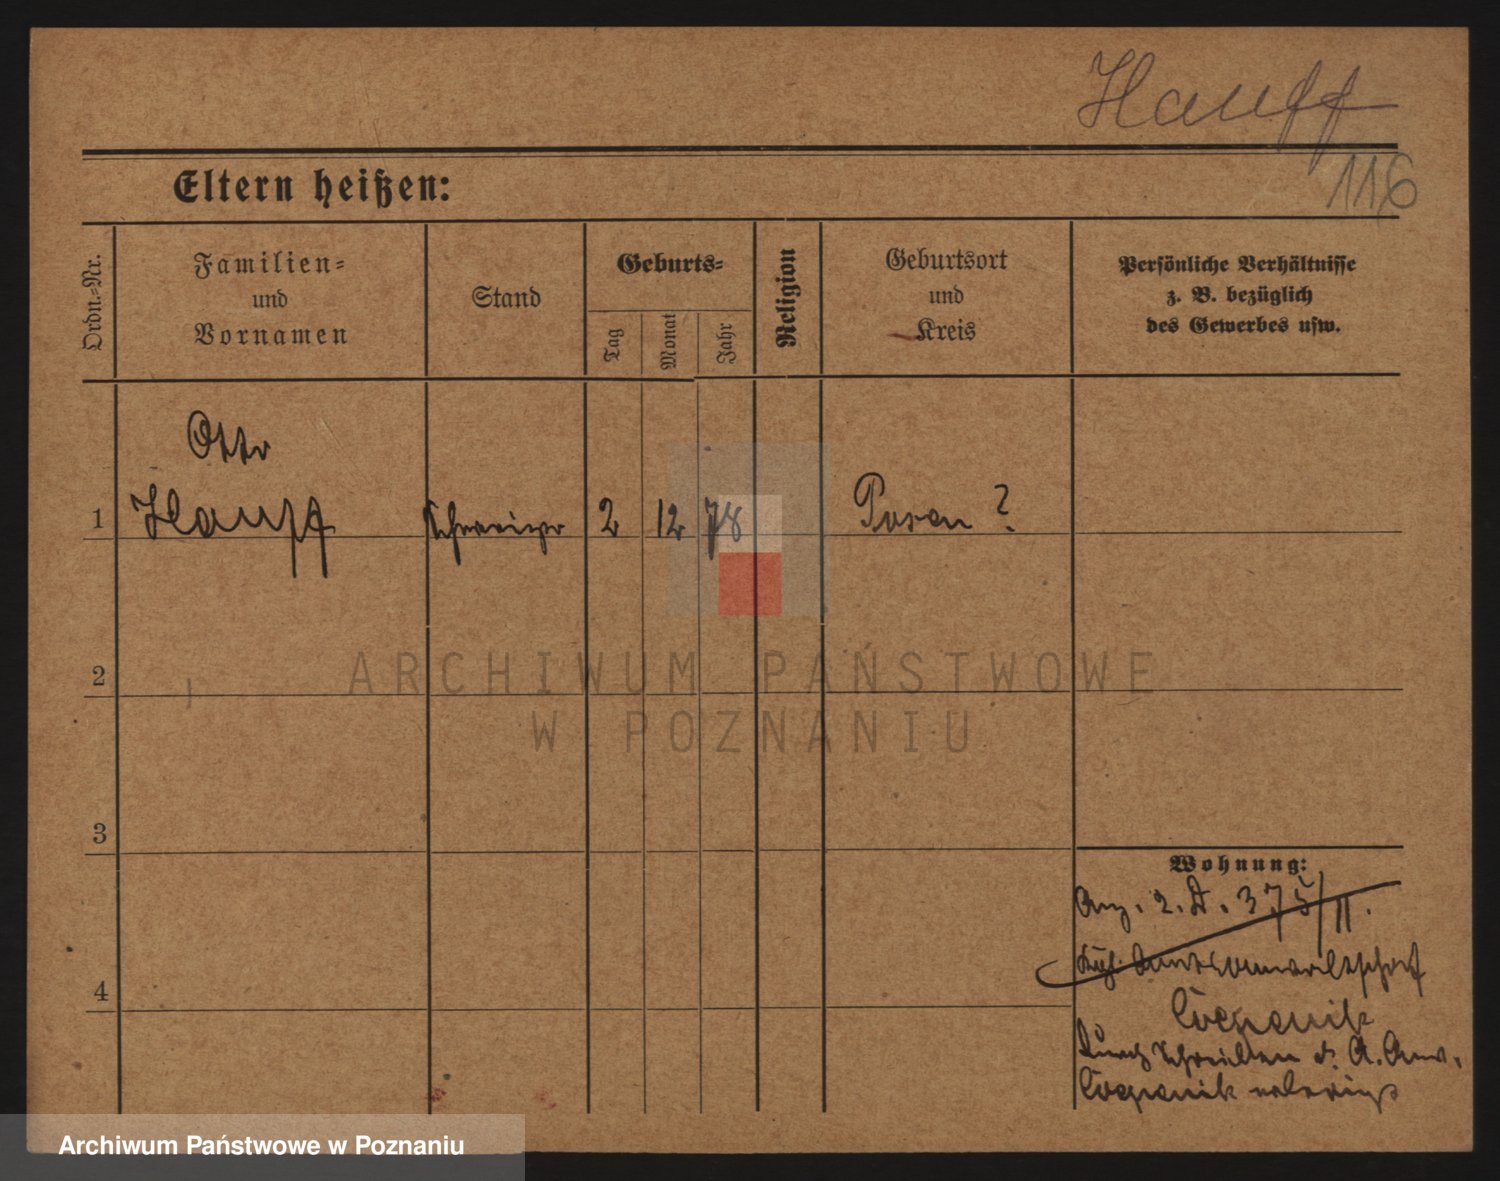 Hauff
116
Eltern heißen:
Ordn.-Nr.
Familien-
und
Vornamen
Stand
Geburts-
Tag
Monat
Jahr
Religion
Geburtsort
und
Kreis
Persönliche Verhältnisse
z. B. bezüglich
des Gewerbes usw.
Otto
1 Hauff Schweizer 2 12 78 Posen ?
2
3
4
Wohnung:
2. D. 375/11.
Kgl. Amtsanwaltschaft
Cöpenik
Durch Schreiben d. A. Anw.
Cöpenik erledigt
ARCHIWUM PAŃSTWOWE
W POZNANIU
Archiwum Państwowe w Poznaniu